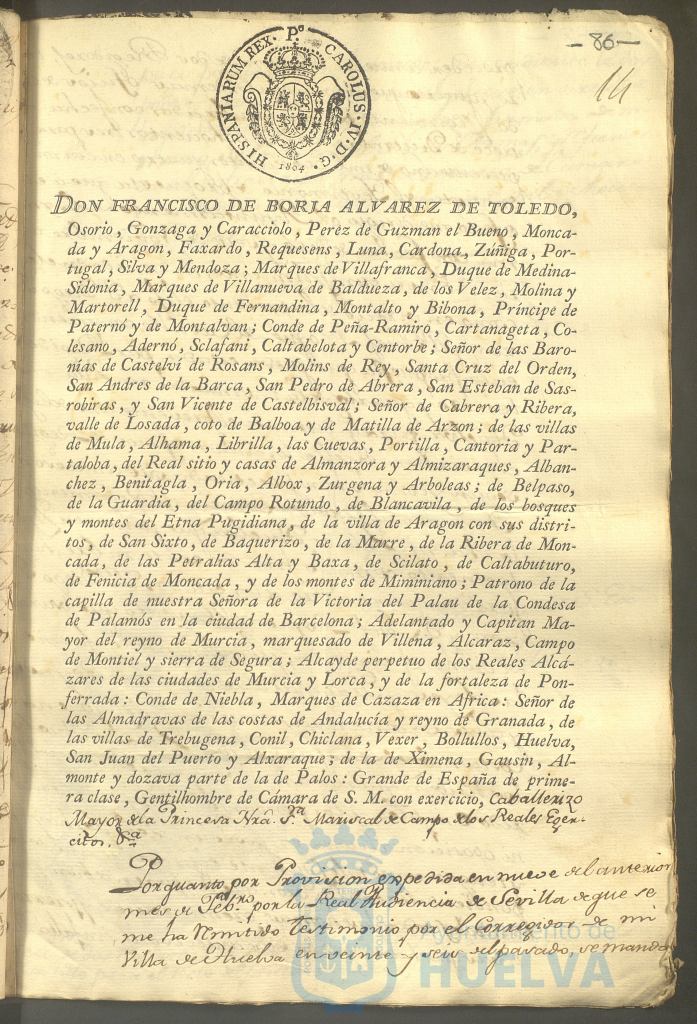 -86-
14
HISPANIARUM REX. P.º CAROLUS·IV·D·G·
1804
DON FRANCISCO DE BORJA ALVAREZ DE TOLEDO,
Osorio, Gonzaga y Caracciolo, Perez de Guzman el Bueno, Monca-
da y Aragon, Faxardo, Requesens, Luna, Cardona, Zúñiga, Por-
tugal, Silva y Mendoza; Marques de Villafranca, Duque de Medina-
Sidonia, Marques de Villanueva de Baldueza, de los Velez, Molina y
Martorell, Duque de Fernandina, Montalto y Bibona, Príncipe de
Paternó y de Montalvan; Conde de Peña-Ramiro, Cartanageta, Co-
lesano, Adernó, Sclafani, Caltabelota y Centorbe; Señor de las Baro-
nías de Castelví de Rosans, Molins de Rey, Santa Cruz del Orden,
San Andres de la Barca, San Pedro de Abrera, San Esteban de Sas-
robiras, y San Vicente de Castelbisval; Señor de Cabrera y Ribera,
valle de Losada, coto de Balboa y de Matilla de Arzon; de las villas
de Mula, Alhama, Librilla, las Cuevas, Portilla, Cantoria y Par-
taloba, del Real sitio y casas de Almanzora y Almizaraques, Alban-
chez, Benitagla, Oria, Albox, Zurgena y Arboleas; de Belpaso,
de la Guardia, del Campo Rotundo, de Blancavila, de los bosques
y montes del Etna Pugidiana, de la villa de Aragon con sus distri-
tos, de San Sixto, de Baquerizo, de la Marre, de la Ribera de Mon-
cada, de las Petralias Alta y Baxa, de Scilato, de Caltabuturo,
de Fenicia de Moncada, y de los montes de Miminiano; Patrono de la
capilla de nuestra Señora de la Victoria del Palau de la Condesa
de Palamós en la ciudad de Barcelona; Adelantado y Capitan Ma-
yor del reyno de Murcia, marquesado de Villena, Alcaraz, Campo
de Montiel y sierra de Segura; Alcayde perpetuo de los Reales Alcá-
zares de las ciudades de Murcia y Lorca, y de la fortaleza de Pon-
ferrada: Conde de Niebla, Marques de Cazaza en Africa: Señor de
las Almadravas de las costas de Andalucía y reyno de Granada, de
las villas de Trebugena, Conil, Chiclana, Vexer, Bollullos, Huelva,
San Juan del Puerto y Alxaraque; de la de Ximena, Gausin, Al-
monte y dozava parte de la de Palos: Grande de España de prime-
ra clase, Gentilhombre de Cámara de S. M. con exercicio, Caballerizo
Mayor de la Princesa Nra. S.ra Mariscal de Campo de los Reales Exer-
citos &.a
Por quanto por Provision expedida en nueve del anterior
mes de Feb.ro por la Real Audiencia de Sevilla de que se
me ha remitido testimonio por el Corregidor de mi
Villa de Huelva en veinte y seis del pasado, se manda
Ayuntamiento de
HUELVA